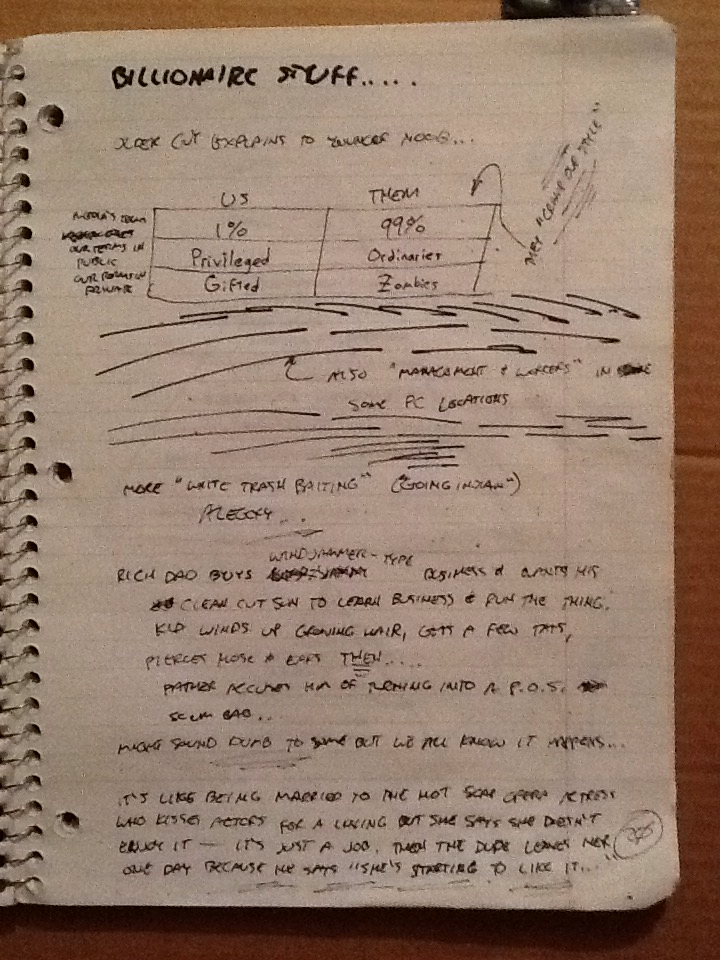 BILLIONAIRE STUFF.....
OLDER GUY EXPLAINS TO YOUNGER NOOB...
THEY "CRAMP OUR STYLE"
US THEM
MEDIA'S TERMS 1% 99%
OUR TERMS IN PUBLIC Privileged Ordinaries
OUR TERMS IN PRIVATE Gifted Zombies
ALSO "MANAGEMENT & WORKERS" IN
SOME PC LOCATIONS
MORE "WHITE TRASH BAITING" ("GOING INJAN")
ALEGORY...
WINDJAMMER-TYPE
RICH DAD BUYS BUSINESS & WANTS HIS
CLEAN CUT SON TO LEARN BUSINESS & RUN THE THING.
KID WINDS UP GROWING HAIR, GETS A FEW TATS,
PIERCES NOSE & EARS THEN.....
FATHER ACCUSES HIM OF TURNING INTO A P.O.S.
SCUM BAG..
MIGHT SOUND DUMB TO SOME BUT WE ALL KNOW IT HAPPENS...
IT'S LIKE BEING MARRIED TO THE HOT SOAP OPERA ACTRESS
WHO KISSES ACTORS FOR A LIVING BUT SHE SAYS SHE DOESN'T
ENJOY IT — IT'S JUST A JOB. THEN THE DUDE LEAVES HER
ONE DAY BECAUSE HE SAYS "SHE'S STARTING TO LIKE IT..."